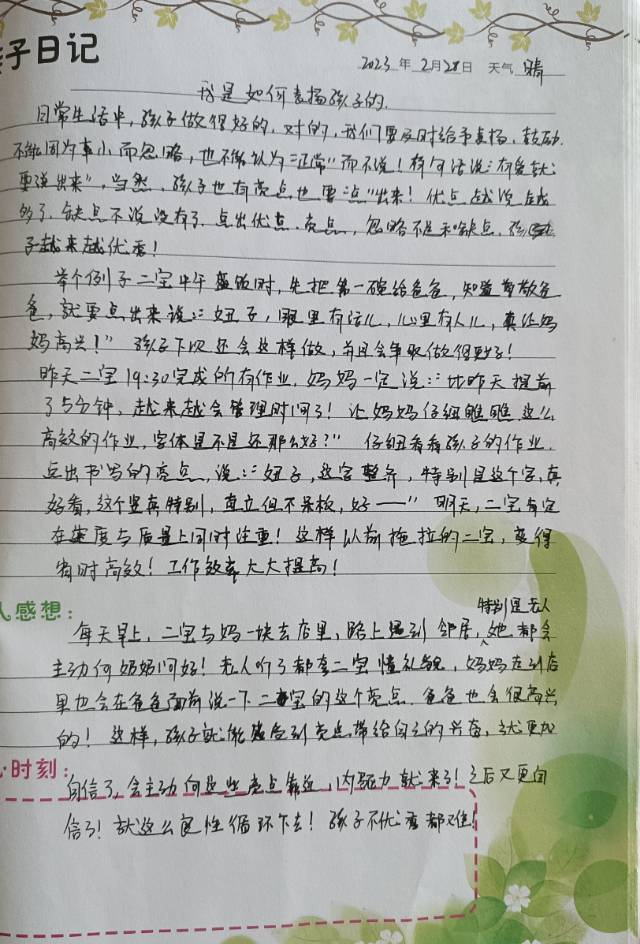 子日记
2023年2月28日 天气 晴
我是如何表扬孩子的.
日常生活中,孩子做得好的,对的,我们要及时给予表扬,鼓励.
不能因为事小而忽略,也不能认为"正常"而不说!有句话说:"有爱就
要说出来",当然,孩子也有亮点也要"点"出来!优点,越说越
多了,缺点不说没有了,点出优点.亮点,忽略不足和缺点,孩
子越来越优秀!
举个例子二宝中午盛饭时,先把第一碗给爸爸,知道尊敬爸
爸,就要点出来说:"妞子,眼里有活儿,心里有人儿,真让妈
妈高兴!"孩子下次还会这样做,并且会争取做得更好!
昨天二宝19:30完成的所有作业,妈妈一定说:"比昨天提前
了5分钟,越来越会管理时间了!让妈妈仔细瞧瞧,这么
高效的作业,字体是不是还那么好?"仔细看看孩子的作业.
点出书写的亮点,说:"妞子,这字整齐,特别是这个字,真
好看,这个竖真特别,直立但不呆板,好——"明天,二宝肯定
在速度与质量上同时注重!这样以前拖拉的二宝,变得
省时高效!工作效率大大提高!
人感想:
特别是老人
每天早上,二宝与妈一块去店里,路上遇到邻居,她都会
主动向奶奶问好!老人听了都夸二宝懂礼貌,妈妈走到店
里也会在爸爸面前说一下二宝的这个亮点.爸爸也会很高兴
的!这样,孩子就能感受到亮点带给自己的兴奋,就更加
时刻:
自信了,会主动向这些亮点靠近,内驱力就来了!之后又更自
信了!就这么良性循环下去!孩子不优秀都难!